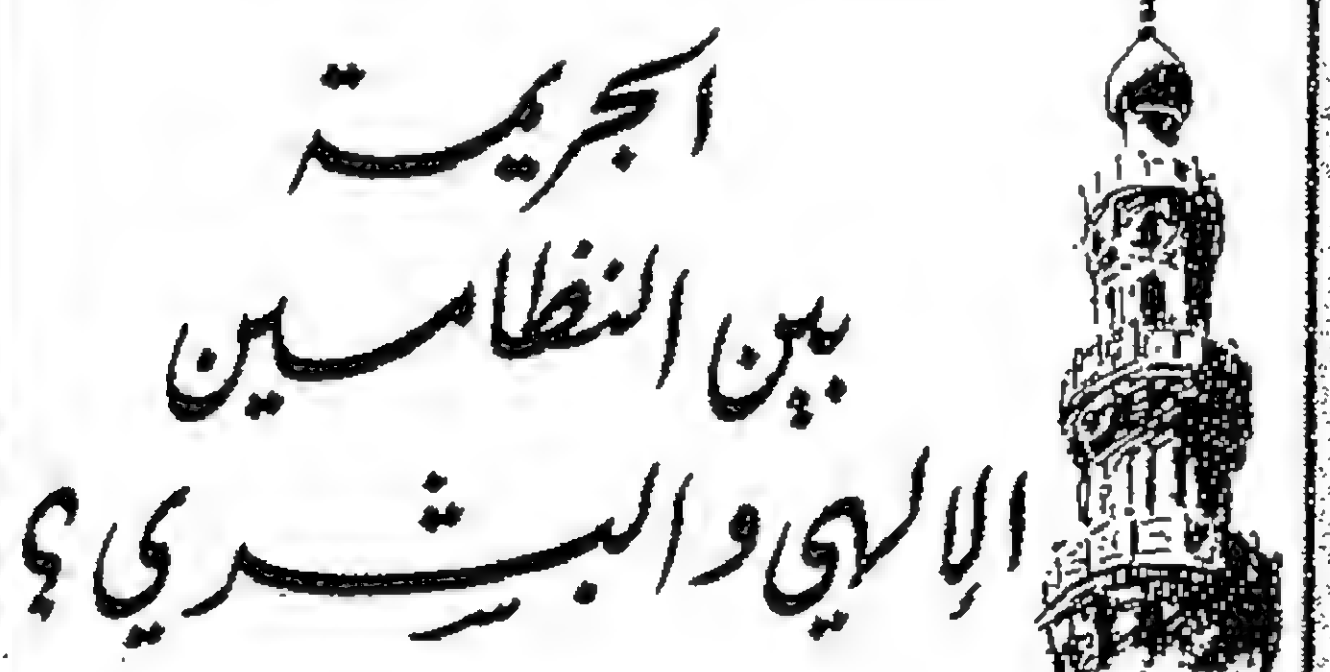 الجريمة
بين النظامين
الإلهي والبشري؟